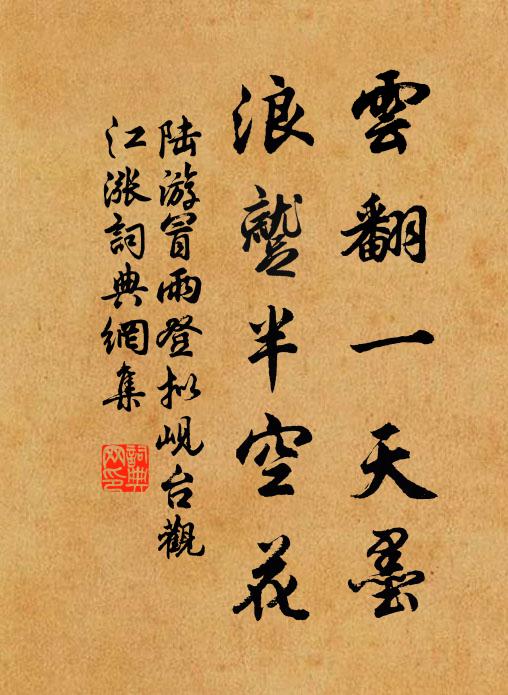 雲翻一天墨
浪蹵半空花
陆游冒雨登拟岘台觀
江涨詞典網集
詞典
网印